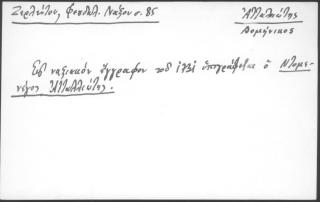 Ζερλέντου, Φεουδαλ. Νάξου σ. 85
Ἀτταλιώτης
Δομήνικος
Εἰς ναξιακὸν ἔγγραφον τοῦ 1731 ὑπογράφεται ὁ Ντομε-
νέγος Ἀτταλιώτης.